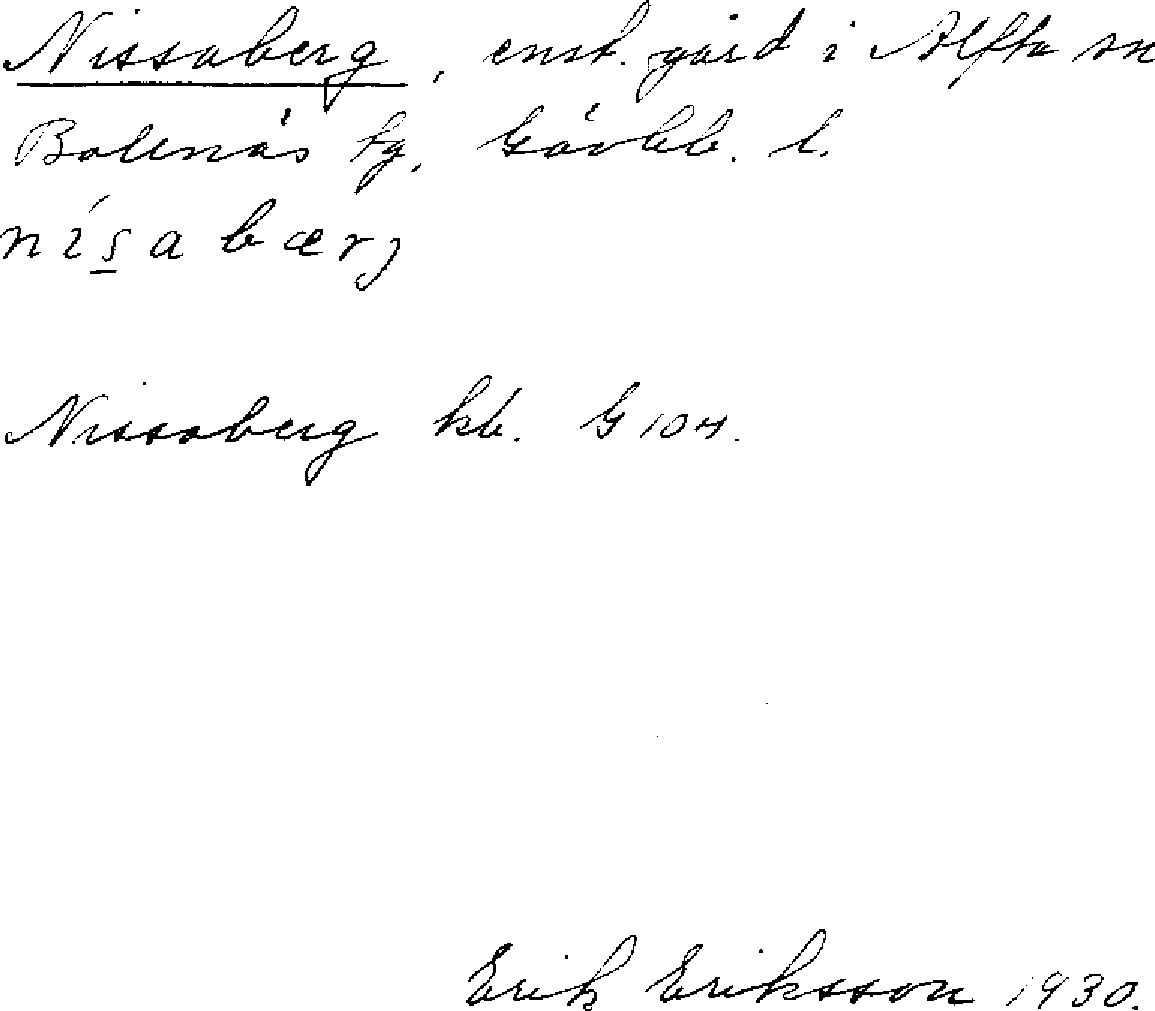 Nissaberg, enst. gård i Alfta sn
Bollnäs tg, Gävleb. l.
nísabærj
Nissaberg kb. G104.
Erik Eriksson 1930.